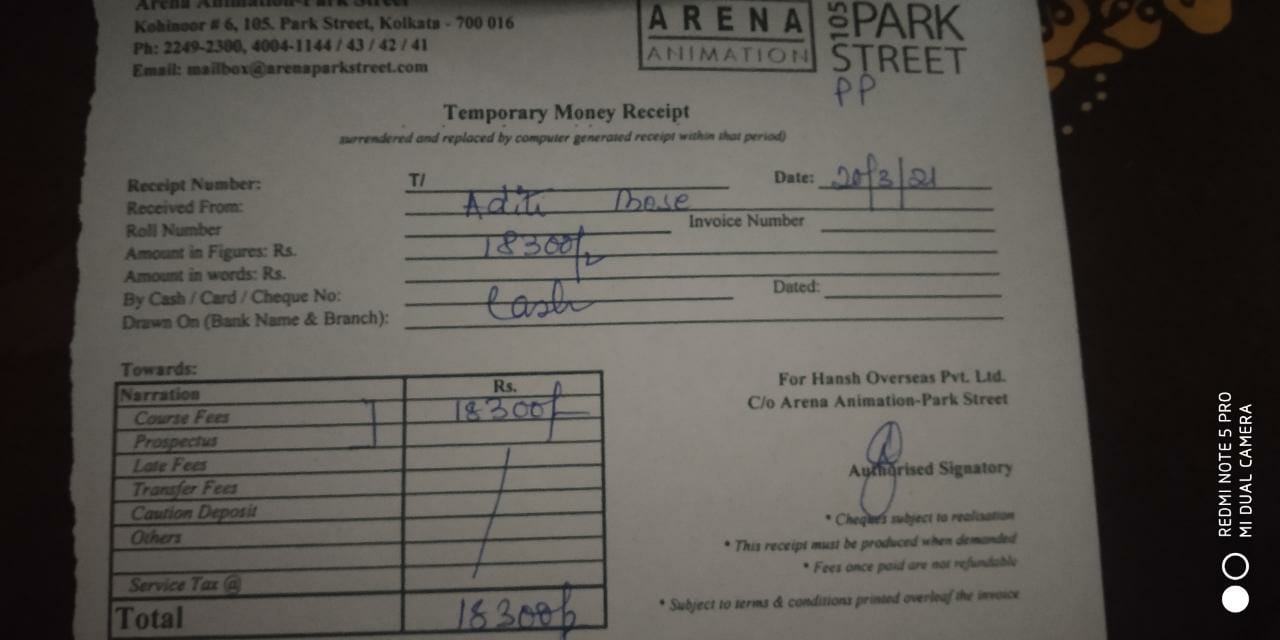 Arena Animation-Park Street
Kohinoor # 6, 105. Park Street, Kolkata - 700 016
Ph: 2249-2300, 4004-1144 / 43 / 42 / 41
Email: mailbox@arenaparkstreet.com
ARENA
ANIMATION
105 PARK
STREET
PP
Temporary Money Receipt
surrendered and replaced by computer generated receipt within that period)
Receipt Number: T/ Date: 20/3/21
Received From: Aditi Bose
Roll Number Invoice Number
Amount in Figures: Rs. 18300/-
Amount in words: Rs.
By Cash / Card / Cheque No: Cash Dated:
Drawn On (Bank Name & Branch):
Towards:
Narration Rs.
Course Fees 18300/-
Prospectus
Late Fees
Transfer Fees
Caution Deposit
Others
Service Tax @
Total 18300/-
For Hansh Overseas Pvt. Ltd.
C/o Arena Animation-Park Street
Authorised Signatory
* Cheques subject to realisation
* This receipt must be produced when demanded
* Fees once paid are not refundable
* Subject to terms & conditions printed overleaf the invoice
REDMI NOTE 5 PRO
MI DUAL CAMERA